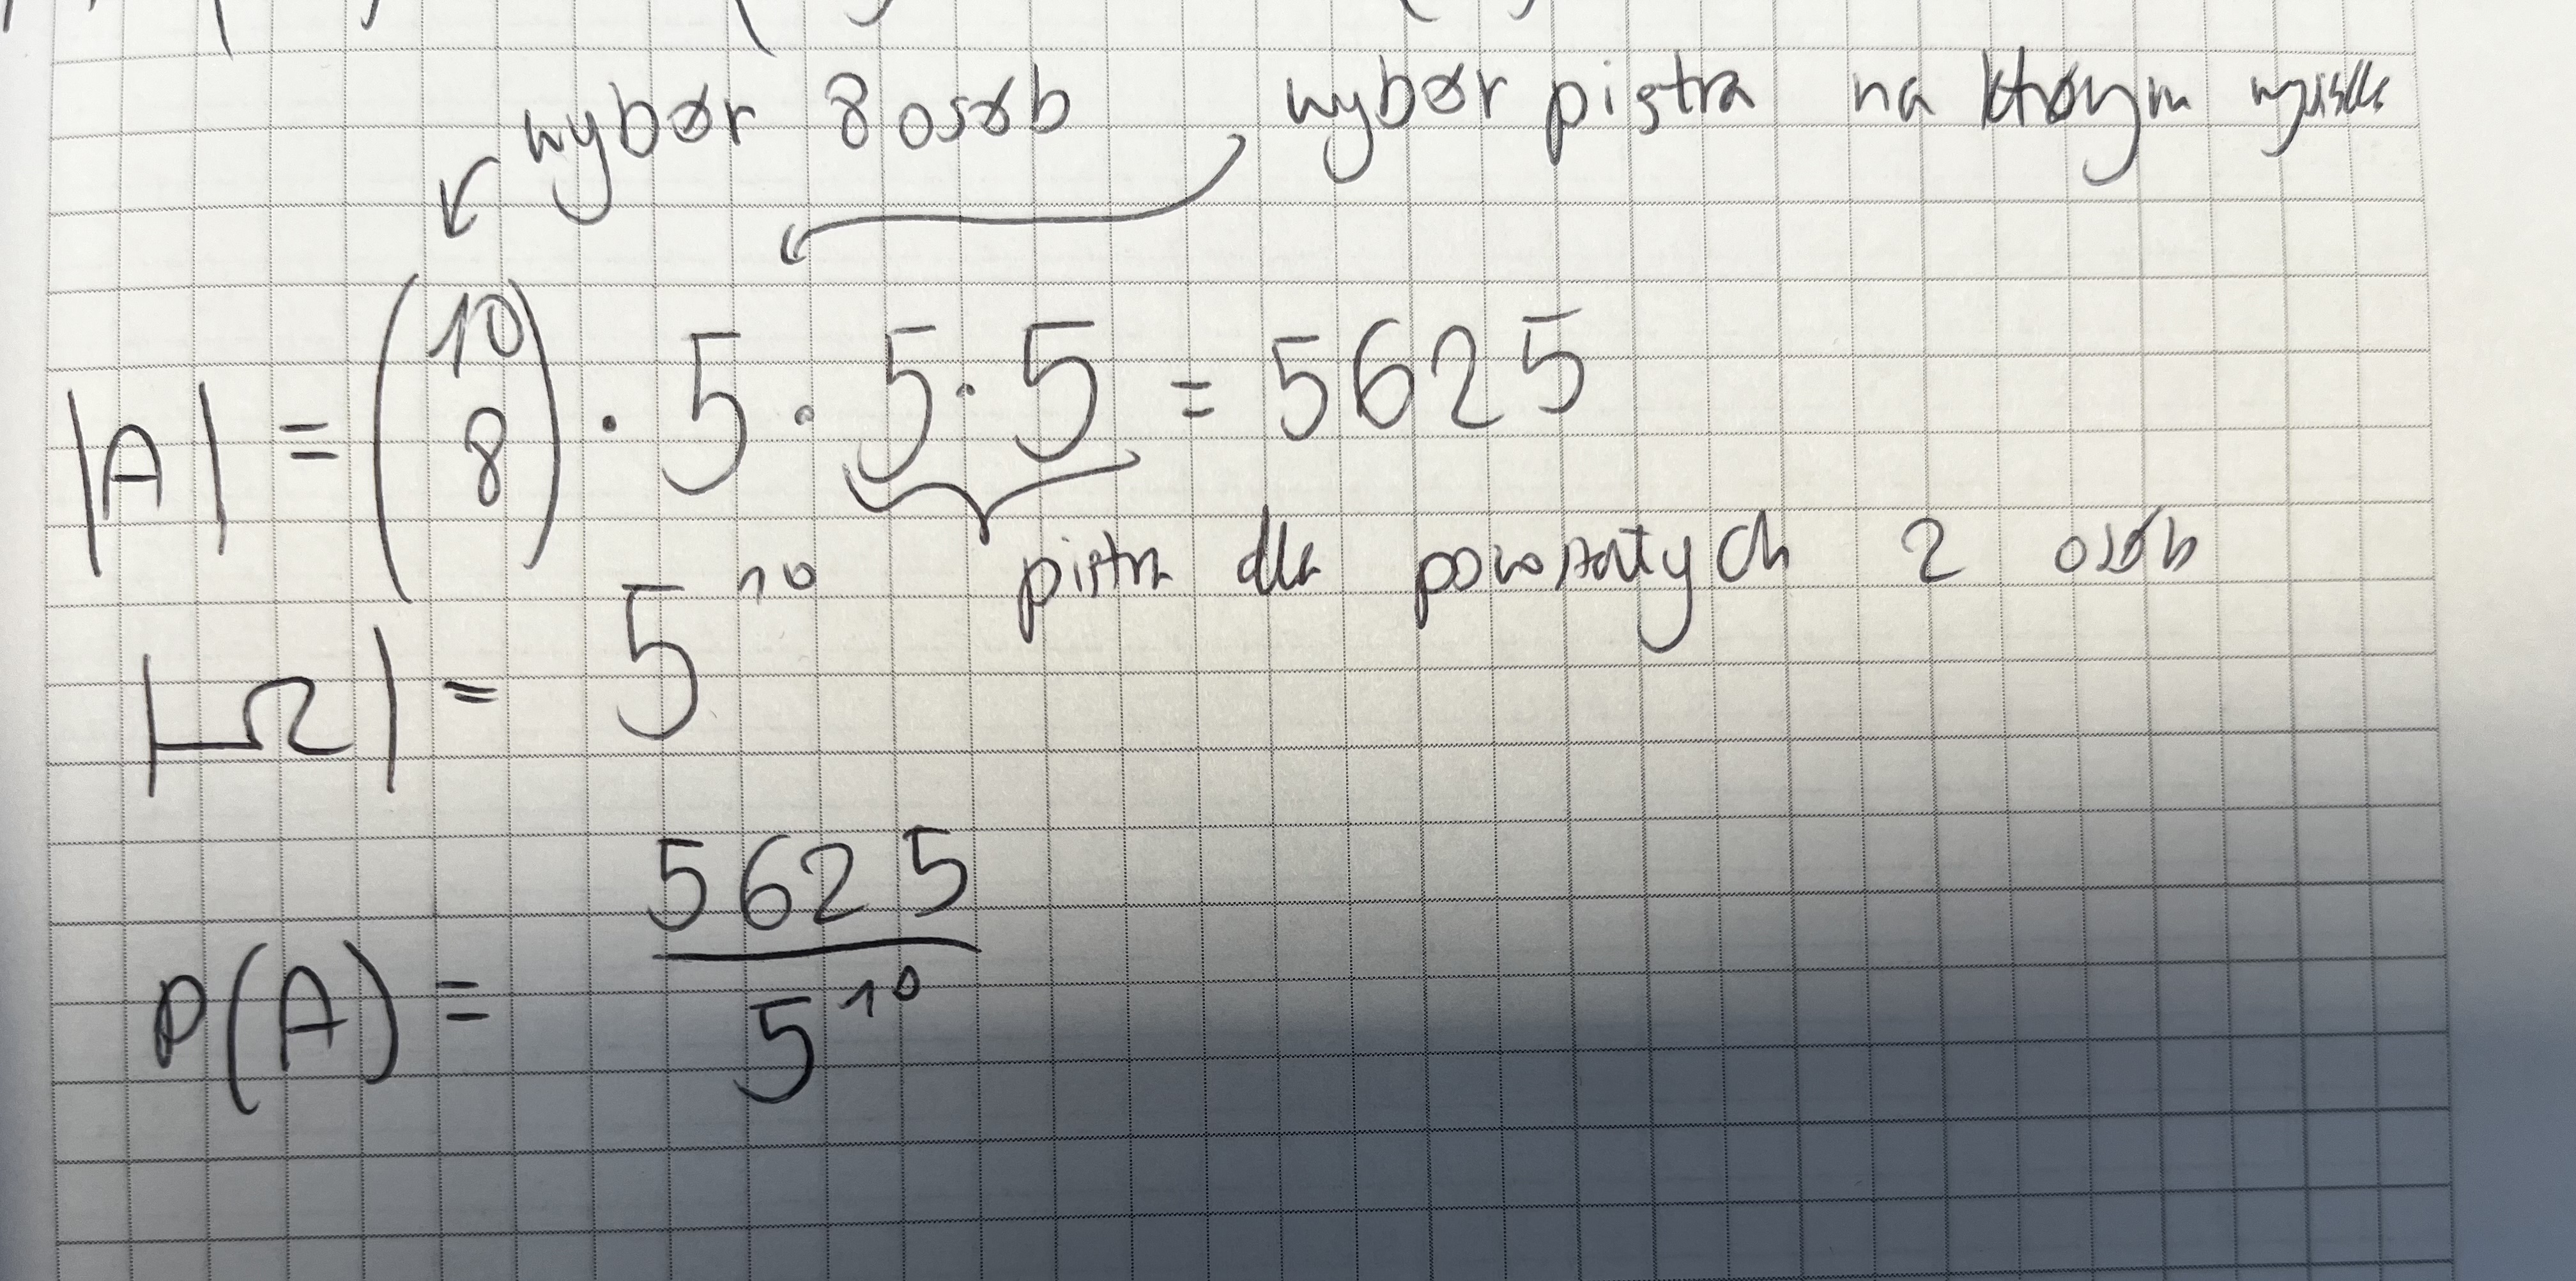 wybór 8 osób wybór piętra na którym
|A| = (10 8) · 5 · 5 · 5 = 5625
piętra dla pozostałych 2 osób
|Ω| = 5^10
P(A) = 5625 / 5^10